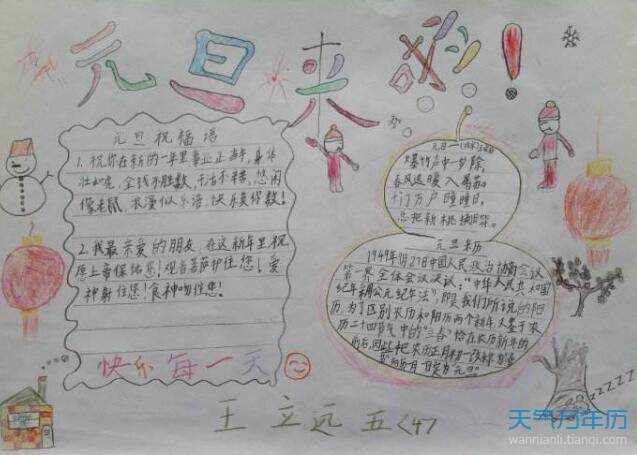 元旦来啦!
元旦祝福语
1.祝你在新的一年里事业正当午,身体
壮如虎,金钱不胜数,干活不辛苦,悠闲
像老鼠,浪漫似乐谱,快乐莫你数!
2.我最亲爱的朋友 在这新年里祝
愿上帝保祐您!观音菩萨护住您!爱
神射住您!食神吻住您!
快乐每一天
元日
爆竹声中一岁除,
春风送暖入屠苏。
千门万户曈曈日,
总把新桃换旧符。
元旦来历
1949年9月27日中国人民政治协商会议
第一界全体会议决议:“中华人民共和国
纪年采用公元纪年法”,即是我们所说的阳
历,为了区别农历和阳历两个新年,又鉴于农
历二十四节气中的“立春”恰在农历新年的
前后,因此把农历正月初一改称为春
节,阳历一月一日定为“元旦”
ZZZZZ
王立远 五<4>
天气万年历
wannianli.tianqi.com